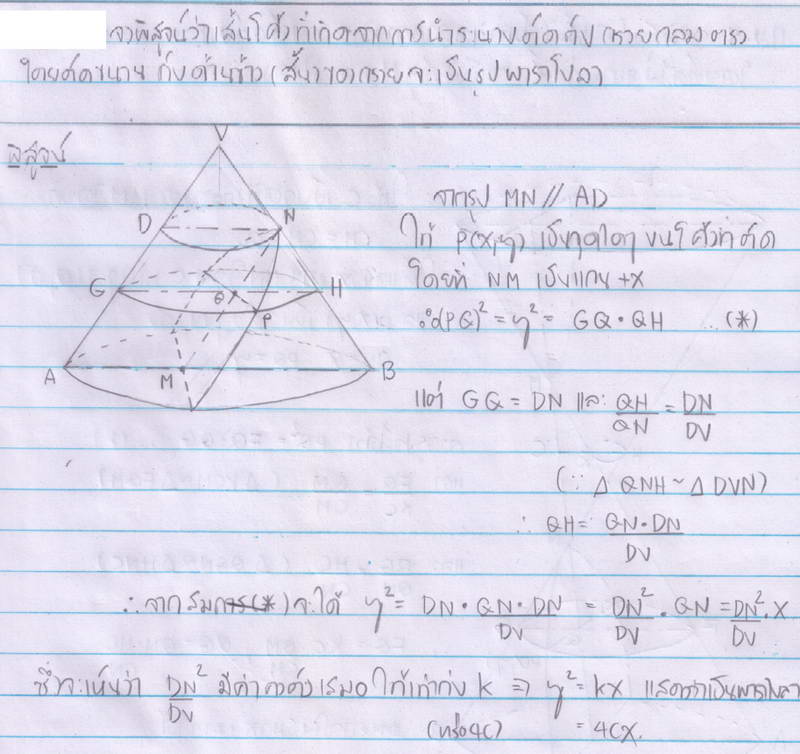 จงพิสูจน์ว่าเส้นโค้งที่เกิดจากการนำระนาบตัดกับกรวยกลมตรง
โดยตัดขนานกับด้านข้าง ของกรวยจะเป็นรูปพาราโบลา
พิสูจน์
V
D
N
G
H
Q
P
A
M
B
จากรูป MN // AD
ให้ P(x,y) เป็นจุดใดๆ บนโค้งที่ตัด
โดยที่ NM เป็นแกน +X
∴ (PQ)² = y² = GQ · QH ...(*)
แต่ GQ = DN และ QH/QN = DN/DV
(∵ Δ QNH ~ Δ DVN)
∴ QH = QN · DN/DV
∴ จากสมการ(*) จะได้ y² = DN · QN · DN/DV = DN²/DV · QN = DN²/DV · x
ซึ่งจะเห็นว่า DN²/DV มีค่าคงตัวเสมอ ให้เท่ากับ k ⇒ y² = kx แสดงว่าเป็นพาราโบลา
(หรือ 4c) = 4cx.